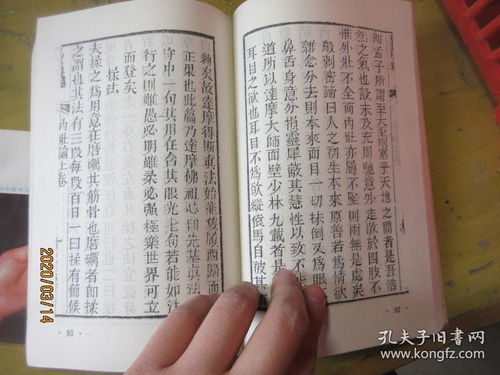 即孟子所謂至大至剛塞乎天地之間者是吾浩
然之氣也設未及充周馳意外走散於四肢不
惟外壯不全而内壯亦屬不堅則兩無是處矣
般剌密諦曰人之初生本來原善若爲情欲
雜念分去則本來面目一切抹倒又爲眼
鼻舌身意亦損靈犀蔽其慧性以致不能
道所以達摩大師面壁少林九載者是
耳目之欲也耳目不爲欲縱猿馬自被其
絆矣故達摩得斯重法始能隻履西歸而
正果也此篇乃達摩佛祖心印先基眞法
守中一句其用在含其眼光七句若能如法
行之則雖愚必明雖柔必強極樂世界可立
而登矣
揉法
夫揉之爲用意在磨礪其筋骨也磨礪者即揉
之謂也其法有三段每段百日一曰揉有節候
内壯論上卷
2020/03/14
孔夫子旧书网
www.kongfz.com